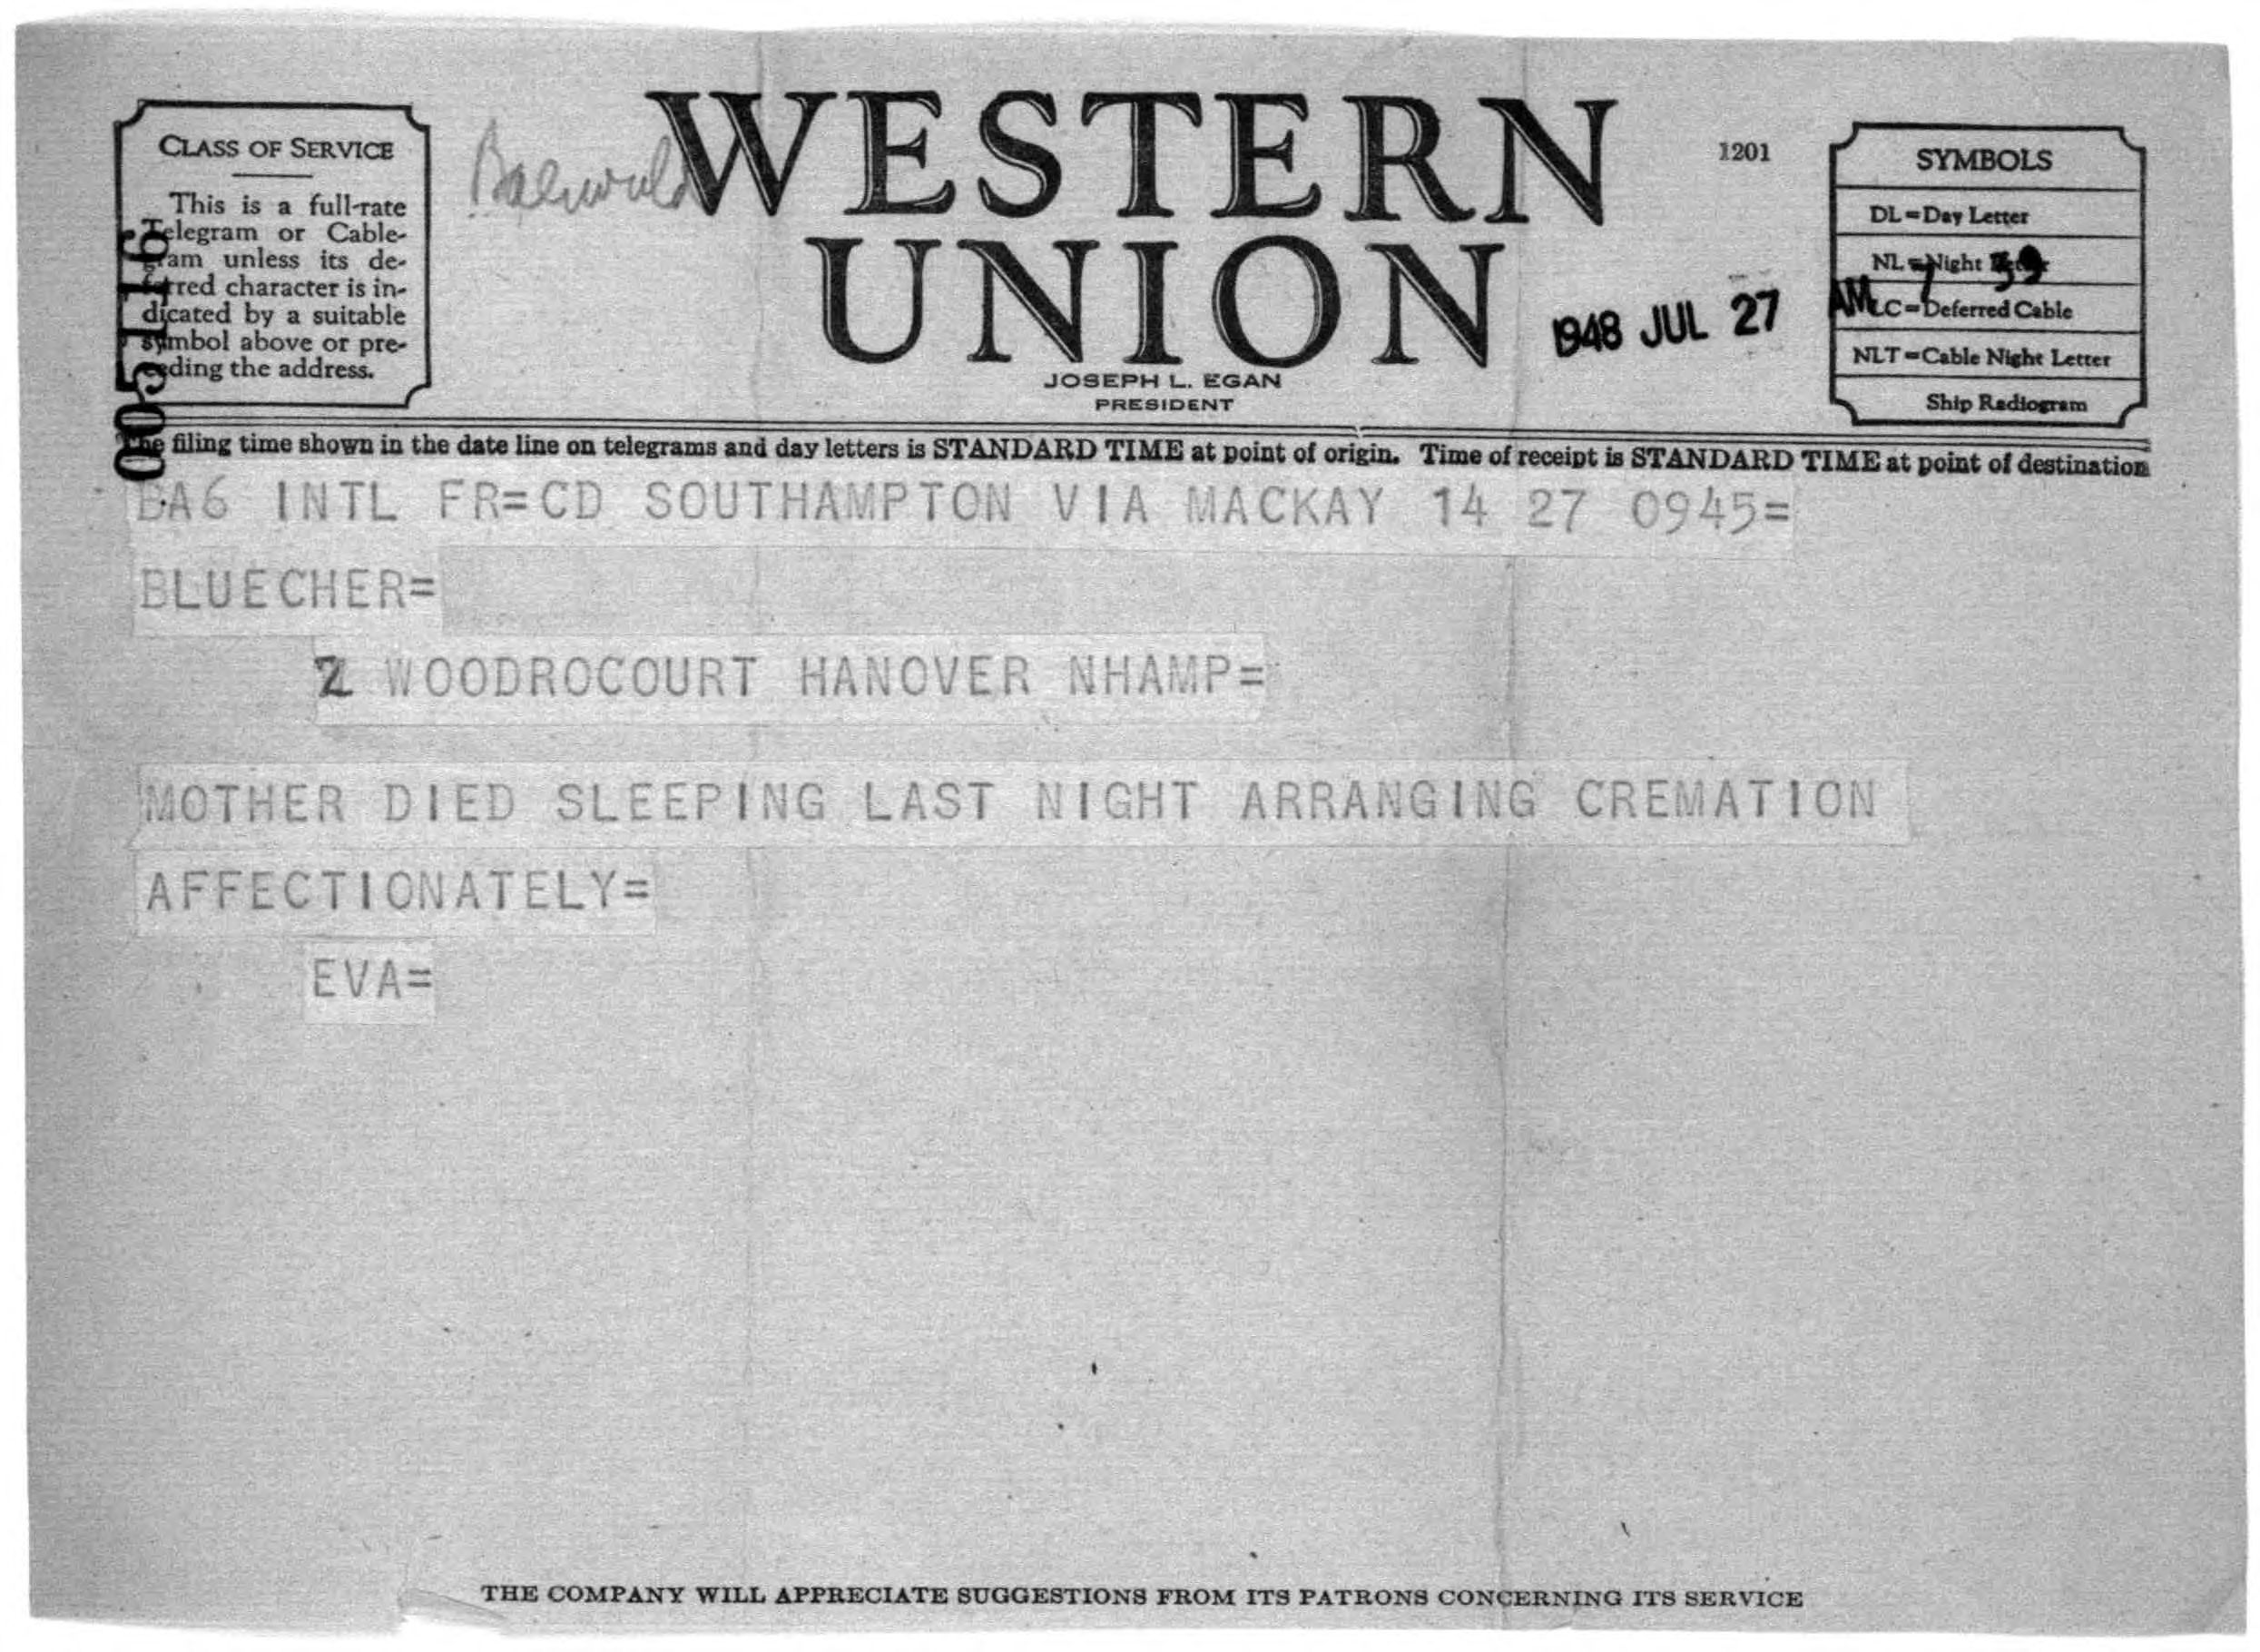 CLASS OF SERVICE
This is a full-rate
Telegram or Cable-
gram unless its de-
ferred character is in-
dicated by a suitable
symbol above or pre-
ceding the address.
WESTERN
UNION
JOSEPH L. EGAN
PRESIDENT
1201
1948 JUL 27 AM 39
SYMBOLS
DL=Day Letter
NL=Night Letter
LC=Deferred Cable
NLT=Cable Night Letter
Ship Radiogram
005116
The filing time shown in the date line on telegrams and day letters is STANDARD TIME at point of origin. Time of receipt is STANDARD TIME at point of destination
BA6 INTL FR=CD SOUTHAMPTON VIA MACKAY 14 27 0945=
BLUECHER=
2 WOODROCOURT HANOVER NHAMP=
MOTHER DIED SLEEPING LAST NIGHT ARRANGING CREMATION
AFFECTIONATELY=
EVA=
THE COMPANY WILL APPRECIATE SUGGESTIONS FROM ITS PATRONS CONCERNING ITS SERVICE